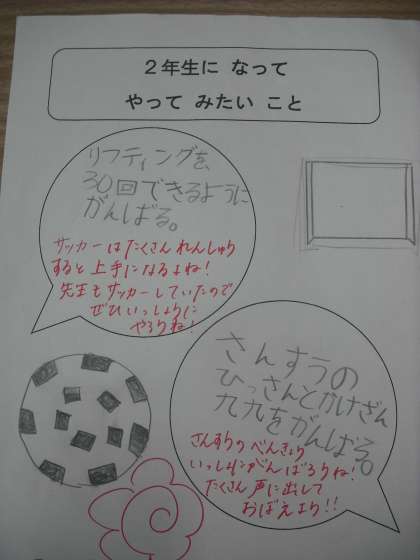 2年生に なって
やって みたい こと
リフティングを、
30回できるように
がんばる。
サッカーはたくさんれんしゅう
すると上手になるよね!
先生もサッカーしていたので
ぜひいっしょに
やろうね!
さんすうの
ひっさんとかけざん
九九をがんばる。
さんすうのべんきょう
いっしょにがんばろうね!
たくさん声に出して
おぼえよう!!